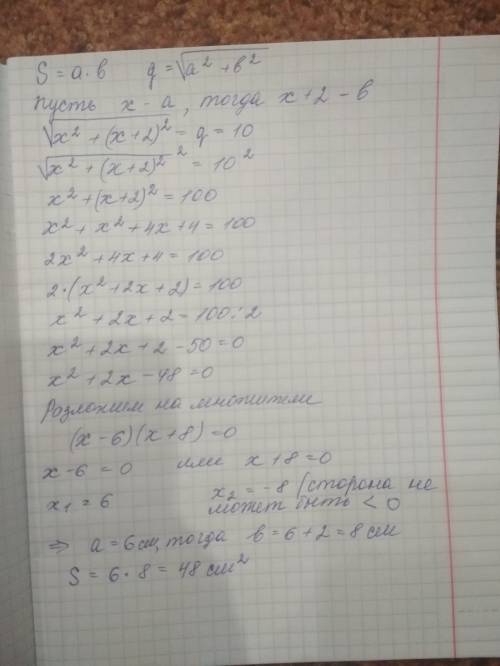 S = a·в   d = √(a² + в²)
Пусть x - a, тогда x+2 - в
√(x² + (x+2)²) = d = 10
√(x² + (x+2)²)² = 10²
x² + (x+2)² = 100
x² + x² + 4x + 4 = 100
2x² + 4x + 4 = 100
2·(x² + 2x + 2) = 100
x² + 2x + 2 = 100 : 2
x² + 2x + 2 - 50 = 0
x² + 2x - 48 = 0
Розложием на множители
(x - 6)(x + 8) = 0
x - 6 = 0   или   x + 8 = 0
x₁ = 6   x₂ = -8 (сторона не
может быть < 0
⇒ a = 6 см, тогда в = 6 + 2 = 8 см
S = 6 · 8 = 48 см²